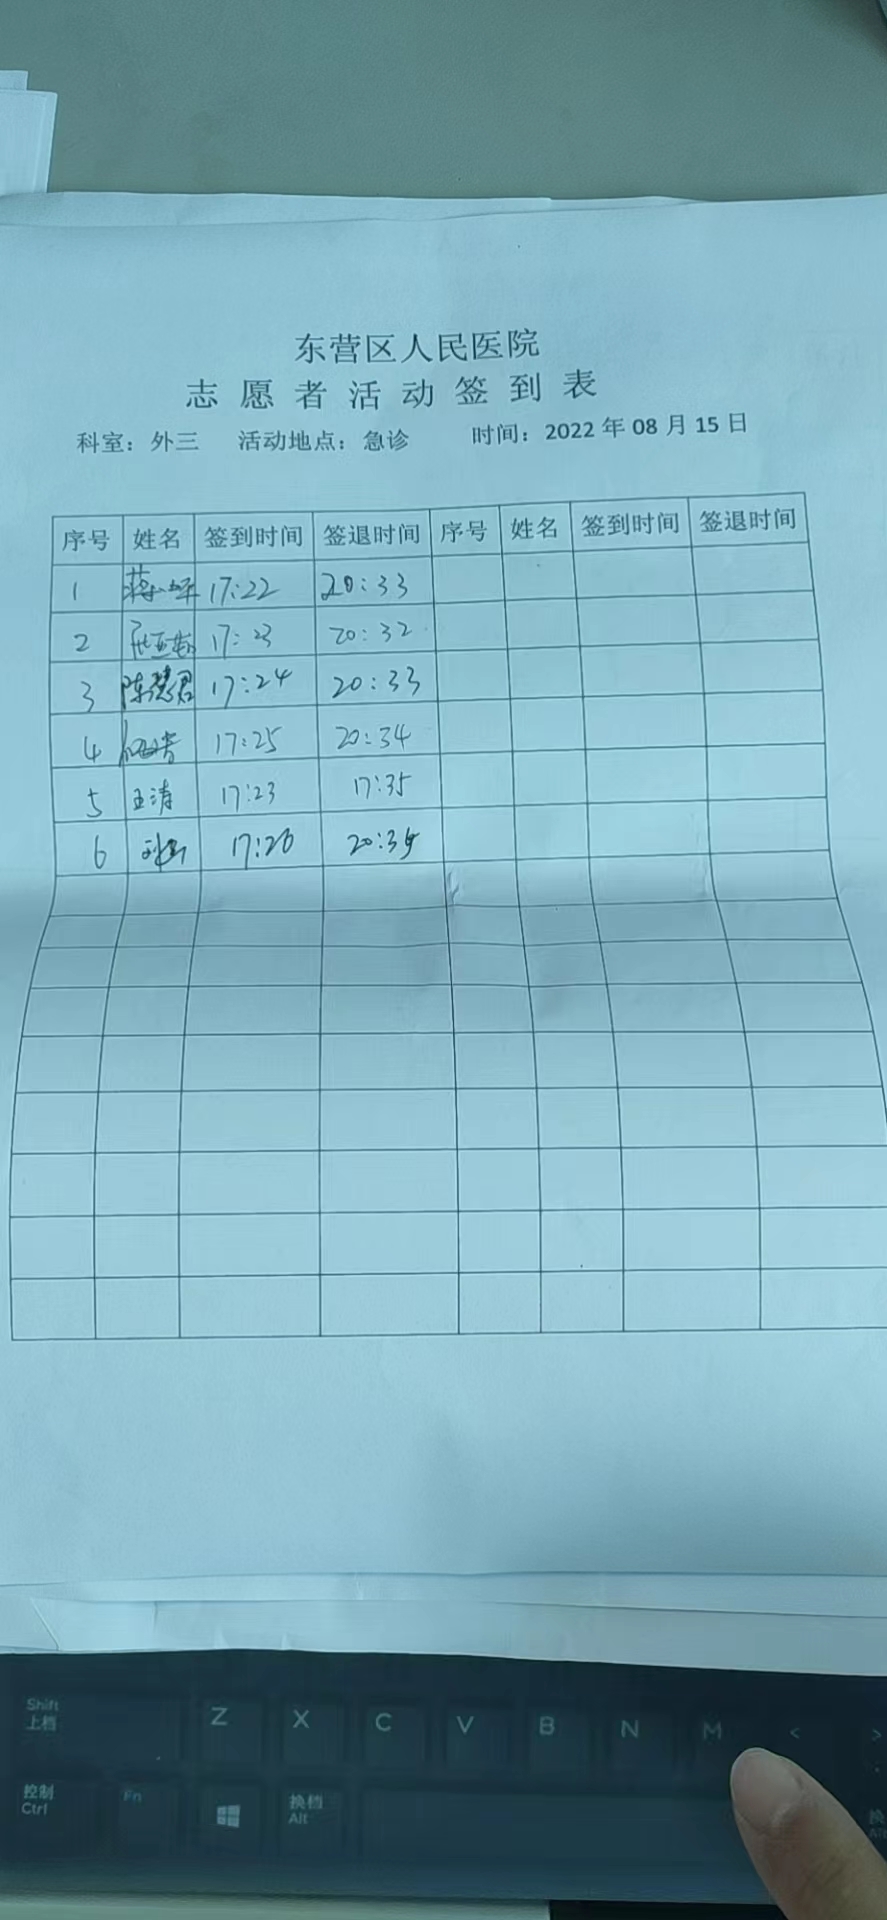 东营区人民医院
志愿者活动签到表
科室：外三 活动地点：急诊 时间：2022年08月15日
序号 姓名 签到时间 签退时间 序号 姓名 签到时间 签退时间
1 17:22 20:33
2 17:23 20:32
3 陈慧君 17:24 20:33
4 17:25 20:34
5 王涛 17:23 17:35
6 17:26 20:35
Shift
上档 Z X C V B N M < >
控制
Ctrl Fn 换档
Alt